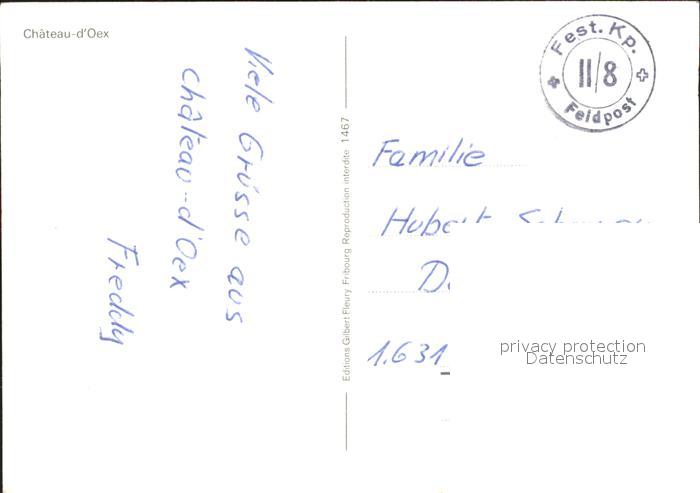 Château-d'Oex
Fest. Kp.
II/8
Feldpost
Viele Grüsse aus
château-d'Oex
Freddy
Editions Gilbert Fleury Fribourg Reproduction interdite 1467
Familie
Hubert
D.
1631
privacy protection
Datenschutz